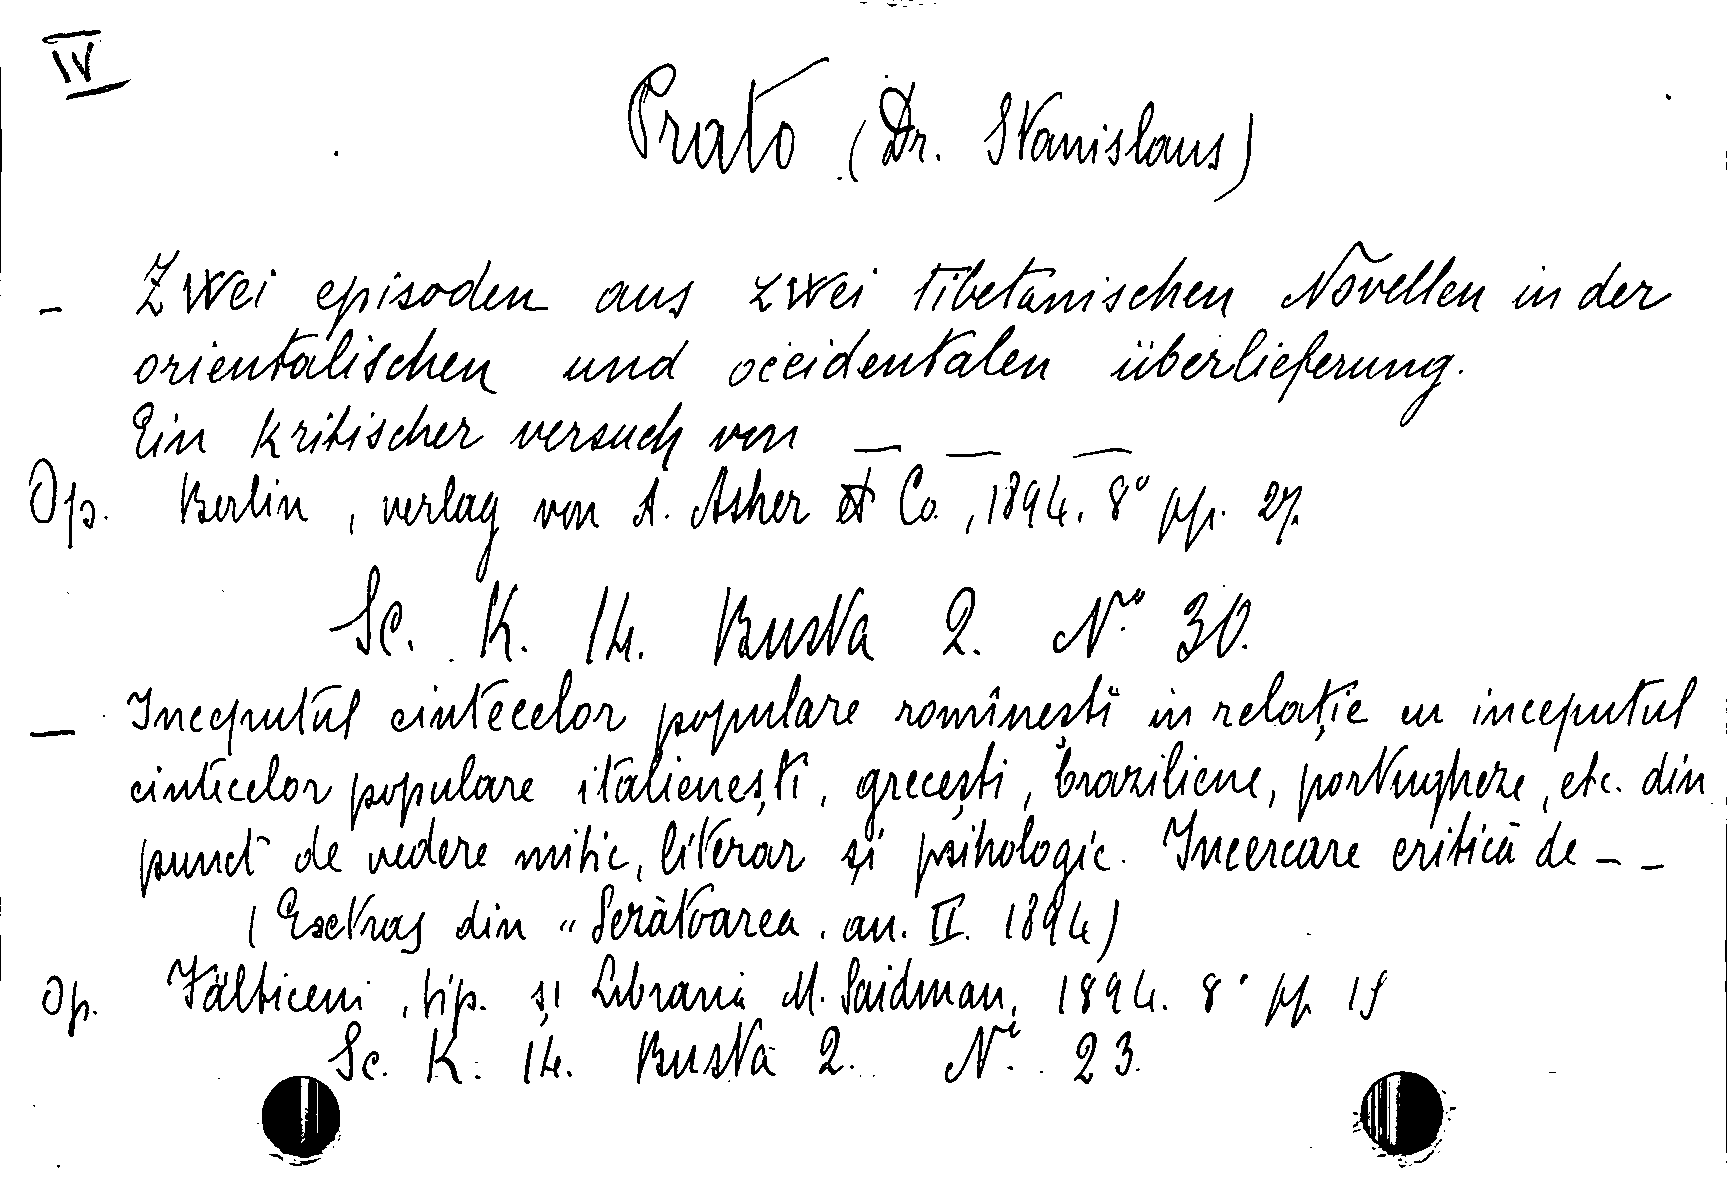 IV
Prato (Dr. Stanislaus)
- Zwei episoden aus zwei tibetanischen Novellen in der
orientalischen und occidentalen überlieferung.
Ein kritischer versuch von — — —
Op. Berlin, verlag von A. Asher & Co., 1894. 8° pp. 27.
Sc. K. 14. Busta 2. N.° 30.
— Inceputul cintecelor populare romînești in relație cu inceputul
cintecelor populare italienești, grecești, braziliene, portugheze, etc. din
punct de vedere mitic, literar și psihologic. Incercare critică de - -
(Exctras din "Serătoarea. an. II. 1894)
Op. Fălticeni, tip. și Libraria M. Saidman, 1894. 8° pp.
Sc. K. 14. Busta 2. N.° 23.